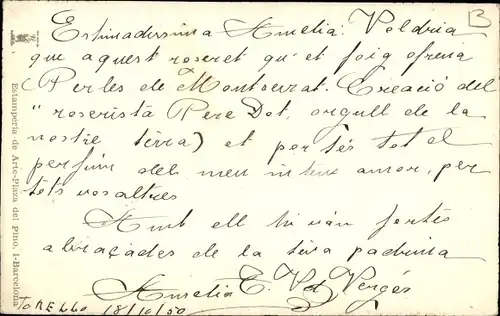 B
Estimadissima Amelia: Voldria
que aquest roseret qu'et faig ofrena
(Perles de Montserrat. Creació del
"roserista Pere Dot, orgull de la
nostre terra) et portés tot el
perfúm del meu intens amor, per
tots vosaltres
Amb ell hi van fortes
abraçades de la teva padrina
Amelia C. Vda Vergés
TORELLO 18/10/50
Estamperia de Arte-Plaza del Pino, 1-Barcelona